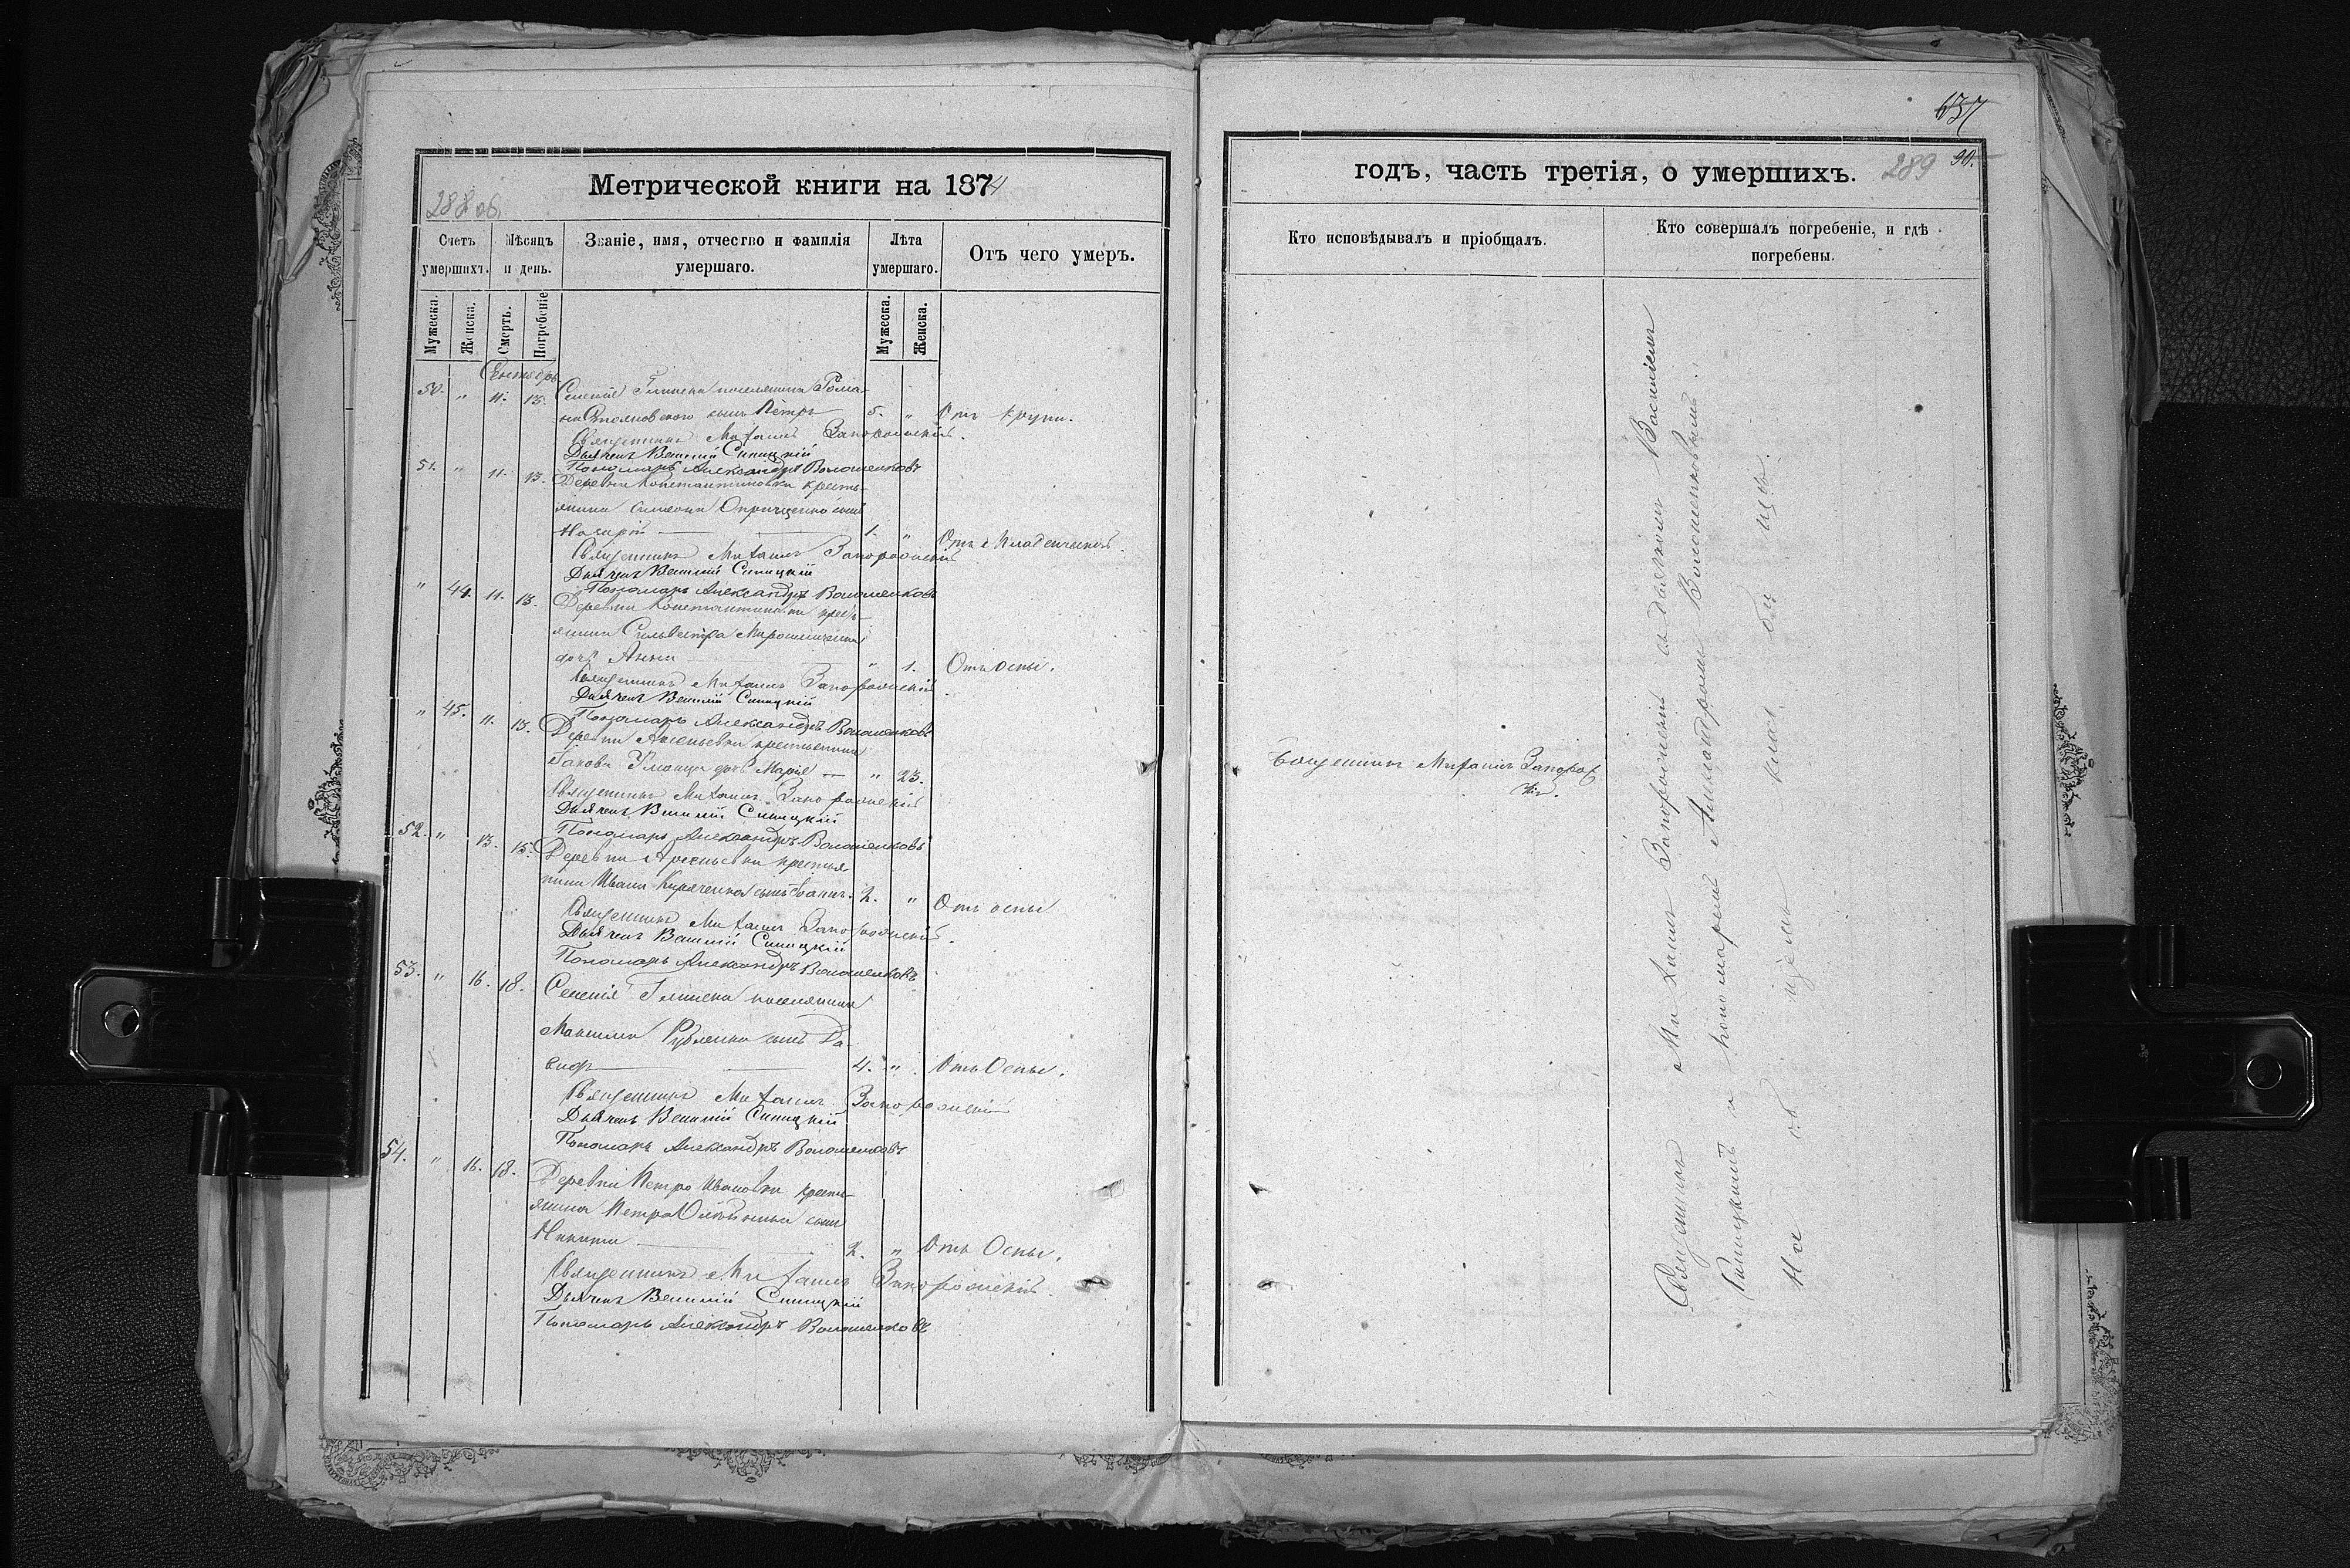 Метрической книги на 1874
288 об.
Счетъ умершихъ.
Мѣсяцъ и день.
Званіе, имя, отчество и фамилія умершаго.
Лѣта умершаго.
Отъ чего умеръ.
Мужеска.
Женска.
Смерть.
Погребеніе
Мужеска.
Женска.
Сентябрь
50. " 11. 13. Селенія Глинска поселянина Рома-
на сынъ Петръ 5. " Отъ крупа.
Священникъ Михаилъ Запорожскій.
Дьячекъ Василій Синицкій
Пономарь Александръ Волошенковъ
51. " 11. 13. Деревни Константиновки кресть-
янина Симеона Онрищенко сынъ
Назарій 1. " Отъ Младенческой.
Священникъ Михаилъ Запорожскій
Дьячекъ Василій Синицкій
Пономарь Александръ Волошенковъ
" 44. 11. 13. Деревни Константиновки кресть-
янина Сильвестра Мирошниченка
дочь Анна " 1. Отъ оспы.
Священникъ Михаилъ Запорожскій.
Дьячекъ Василій Синицкій
Пономарь Александръ Волошенковъ
" 45. 11. 13. Деревни Арсеньевки крестьянина
Іакова Уманца дочь Марія " 23.
Священникъ Михаилъ Запорожскій
Дьячекъ Василій Синицкій
Пономарь Александръ Волошенковъ
52. " 13. 15. Деревни Арсеньевки крестья
нина Ивана сынъ Іоаннъ. 2. " Отъ оспы
Священникъ Михаилъ Запорожскій.
Дьячекъ Василій Синицкій
Пономарь Александръ Волошенковъ
53. " 16. 18. Селенія Глинска поселянина
Максима Рубленка сынъ
4. " Отъ Оспы.
Священникъ Михаилъ Запорожскій
Дьячекъ Василій Синицкій
Пономарь Александръ Волошенковъ
54. " 16. 18. Деревни Петро Ивановки кресть-
янина Петра Олейника сынъ
Никита 2. " Отъ Оспы.
Священникъ Михаилъ Запорожскій.
Дьячекъ Василій Синицкій
Пономарь Александръ Волошенковъ
637
годъ, часть третія, о умершихъ. 289 90.
Кто исповѣдывалъ и пріобщалъ.
Кто совершалъ погребеніе, и гдѣ погребены.
Священникъ Михаилъ Запорож
скій.
Священникъ Михаилъ Запорожскій съ дьячкомъ Василіемъ
Синицкимъ и пономаремъ Александромъ Волошенковымъ
На об щемъ клад би щѣ.